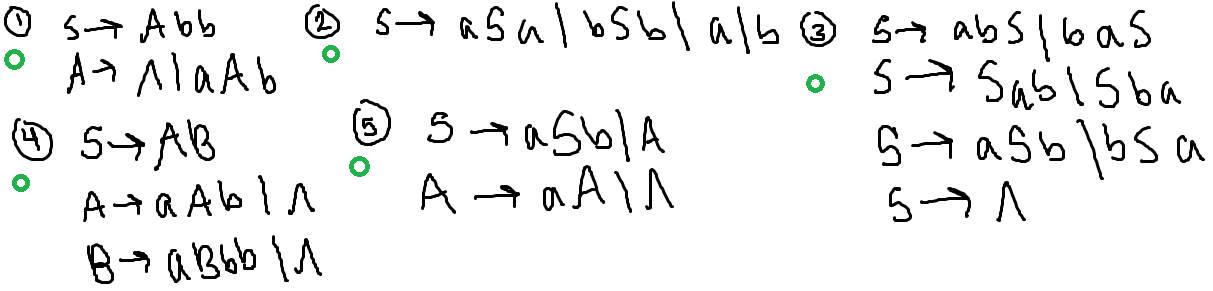 ① S → Abb
A → Λ | aAb
② S → aSa | bSb | a | b
③ S → abS | baS
S → Sab | Sba
S → aSb | bSa
S → Λ
④ S → AB
A → aAb | Λ
B → aBbb | Λ
⑤ S → aSb | A
A → aA | Λ